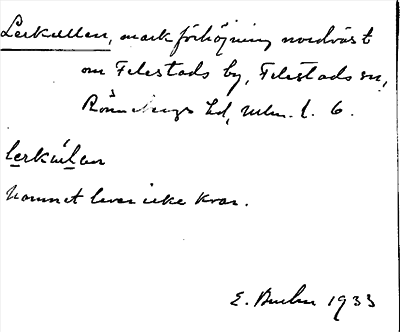 Lerkullen, markförhöjning nordväst
om Felestads by, Felestads sn,
Rönnebergs hd, Mlm. l. 6.
lerkúlan
Namnet lever icke kvar.
E. 1933